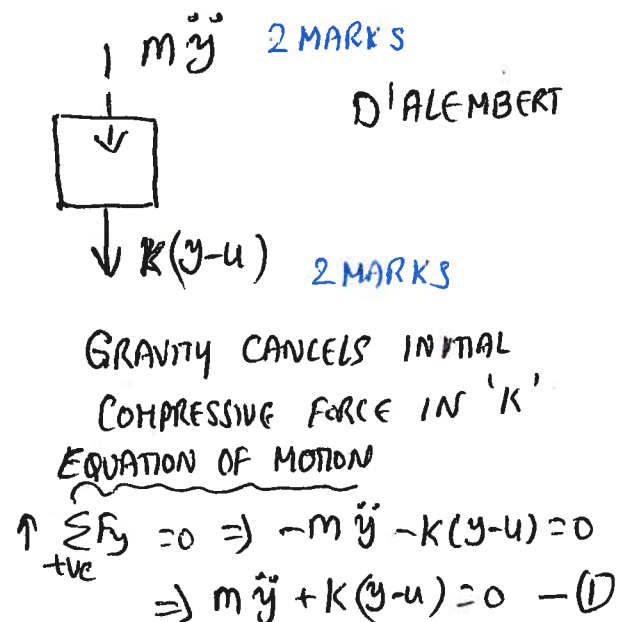 mÿ 2 MARKS
D'ALEMBERT
K(y-u) 2 MARKS
GRAVITY CANCELS INITIAL
COMPRESSIVE FORCE IN 'K'
EQUATION OF MOTION
↑ ΣFy =0 ⇒ -mÿ -K(y-u)=0
+ve
⇒ mÿ +K(y-u)=0 -①